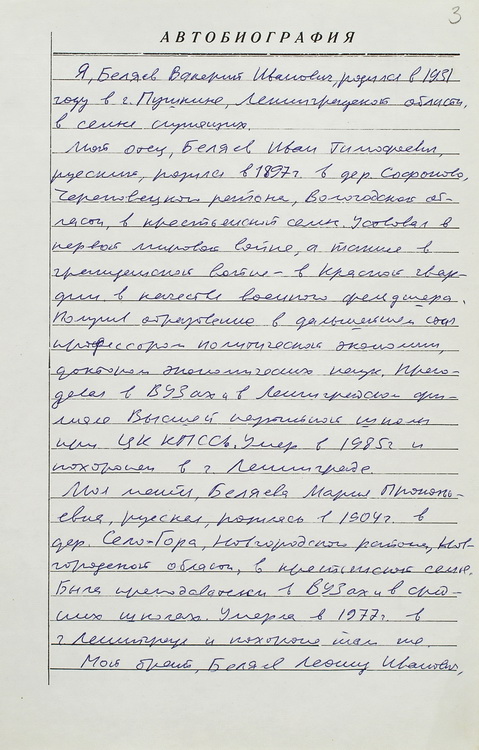 3
АВТОБИОГРАФИЯ
Я, Беляев Валерий Иванович, родился в 1931
году в г. Пушкине, Ленинградской области,
в семье служащих.
Мой отец, Беляев Иван Тимофеевич,
русский, родился в 1897г. в дер. Софроново,
Череповецкого района, Вологодской об-
ласти, в крестьянской семье. Участвовал в
первой мировой войне, а также в
гражданской войне - в Красной гвар-
дии в качестве военного фельдшера.
Получив образование в дальнейшем стал
профессором политической экономии,
доктором экономических наук. Препо-
давал в ВУЗах и в Ленинградском фи-
лиале Высшей партийной школы
при ЦК КПСС. Умер в 1985г и
похоронен в г. Ленинграде.
Моя мать, Беляева Мария Прокопь-
евна, русская, родилась в 1904г. в
дер. Село-Гора, Новгородского района, Нов-
городской области, в крестьянской семье.
Была преподавателем в ВУЗах и в сред-
них школах. Умерла в 1977г. в
г Ленинграде и похоронена там же.
Мой брат, Беляев Леонид Иванович,